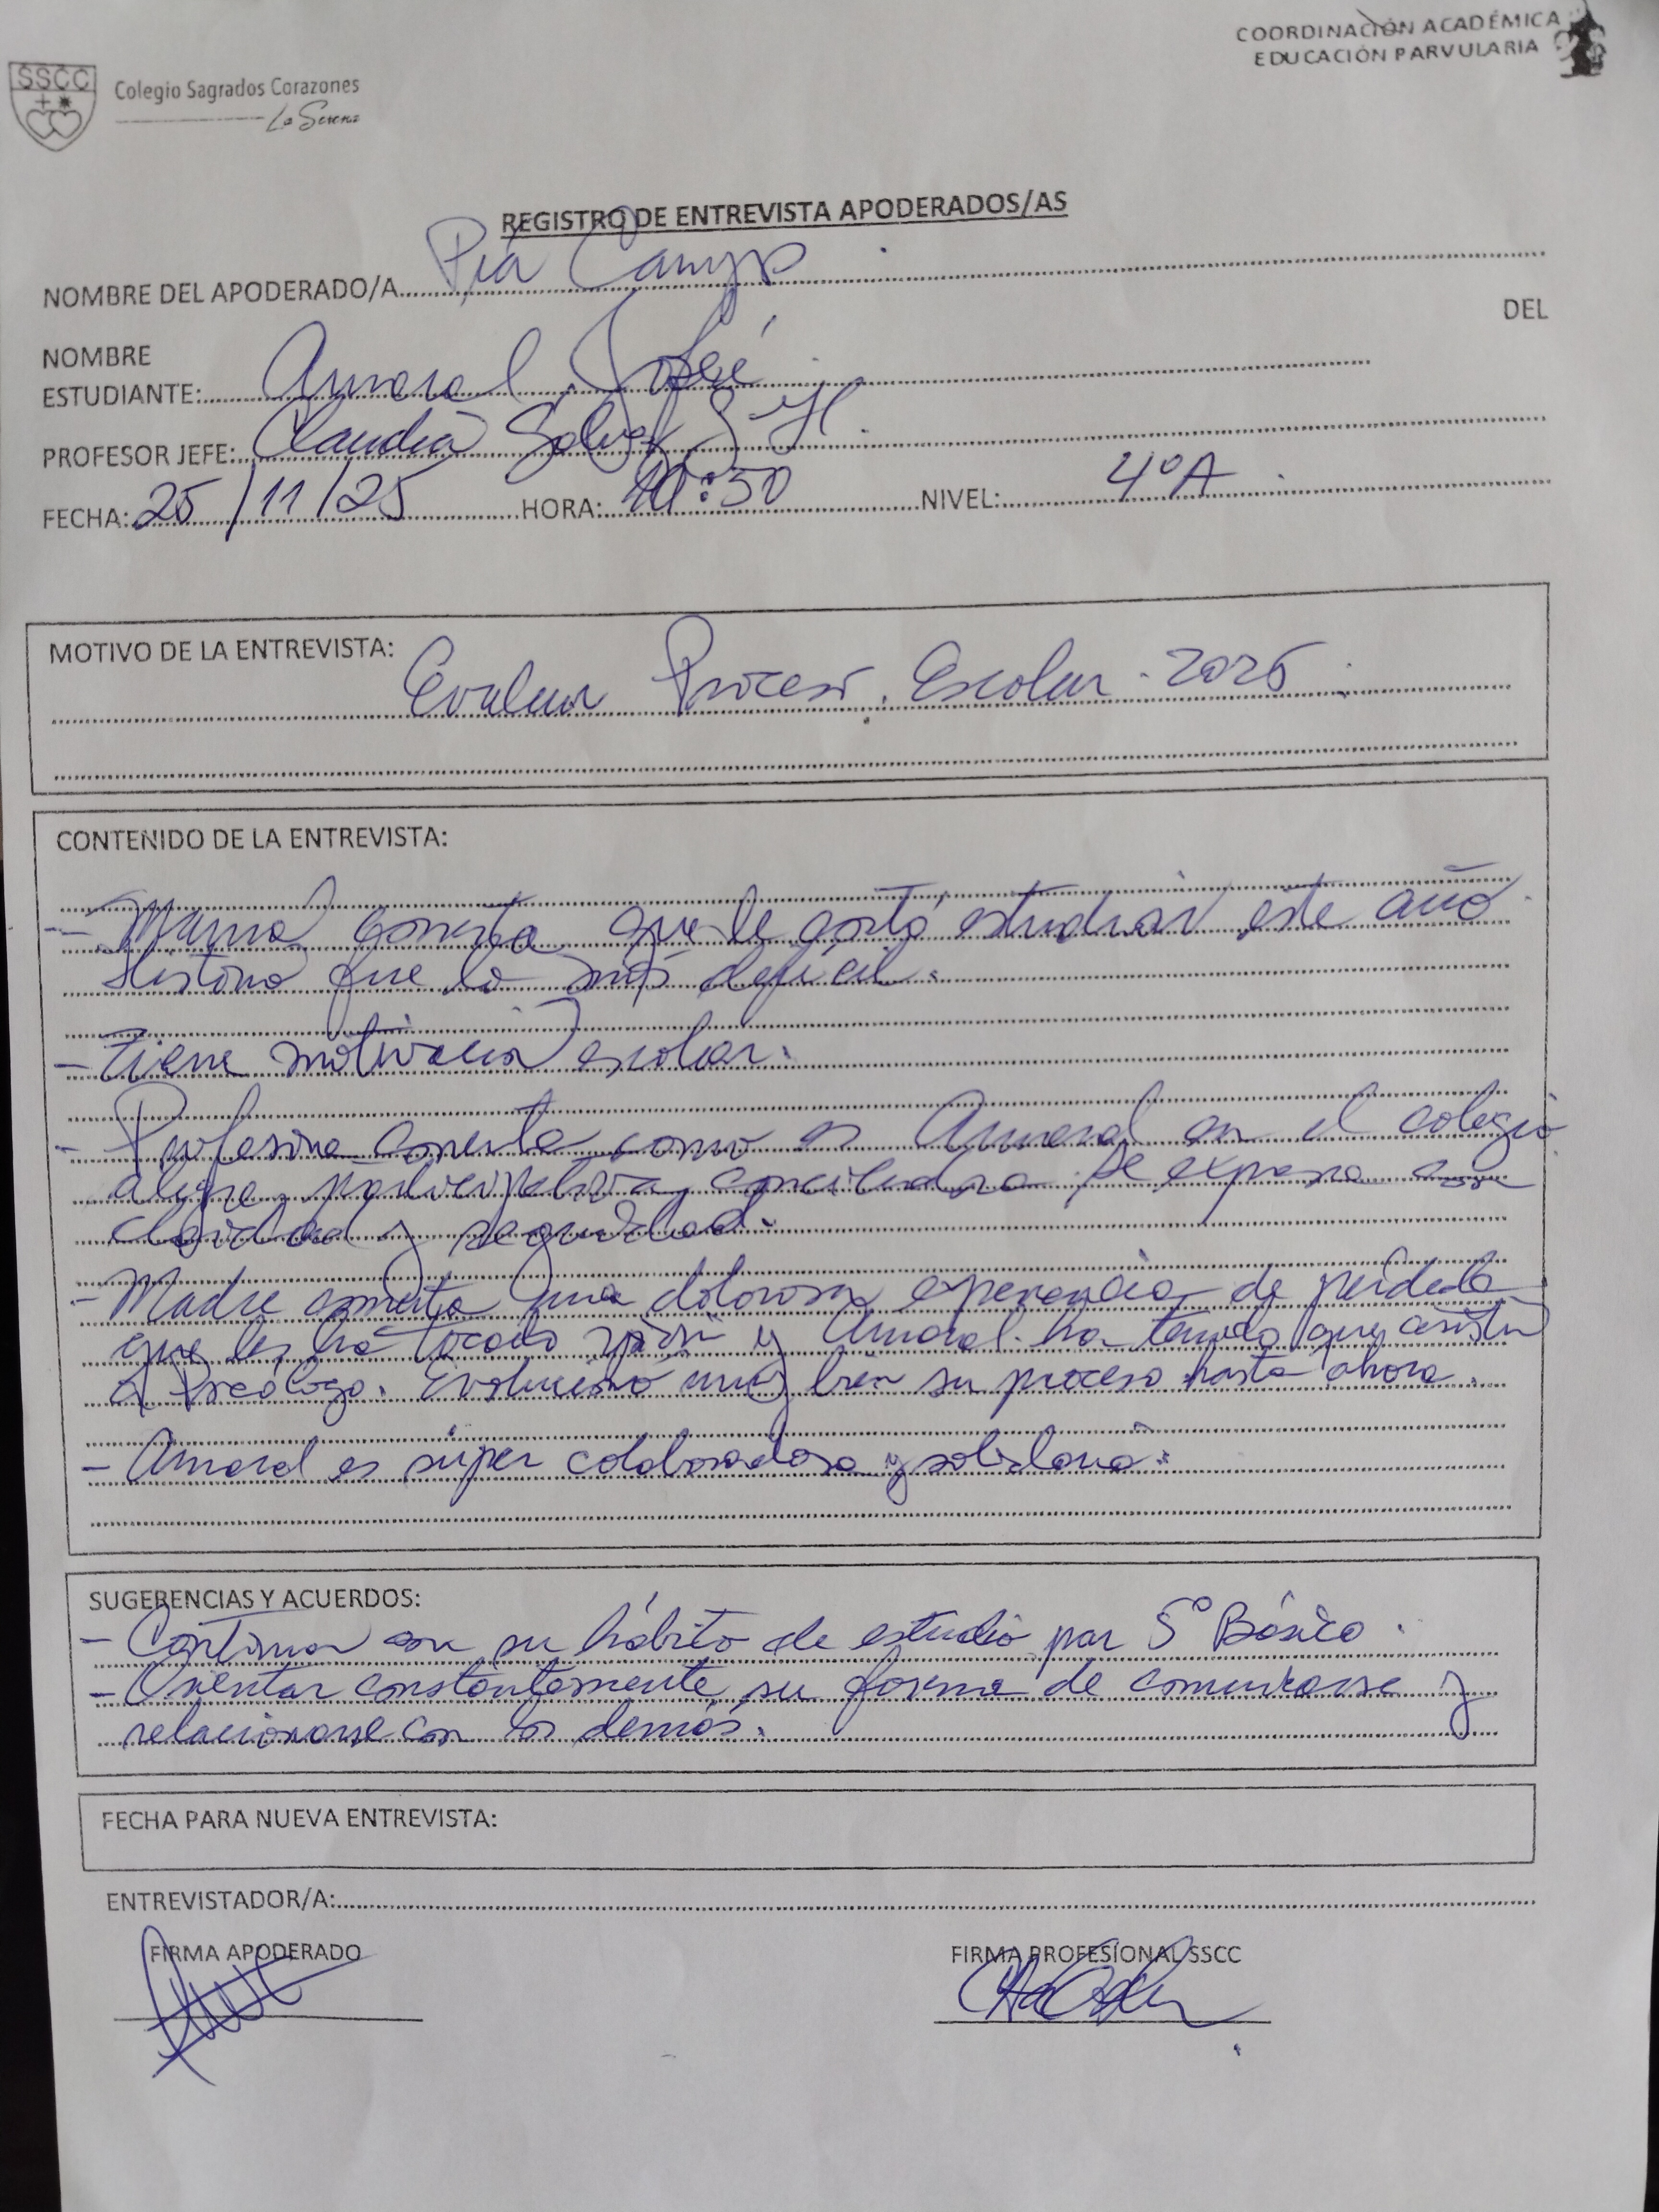 COORDINACIÓN ACADÉMICA
EDUCACIÓN PARVULARIA
SSCC
Colegio Sagrados Corazones
La Serena
REGISTRO DE ENTREVISTA APODERADOS/AS
NOMBRE DEL APODERADO/A Pía
DEL
NOMBRE
ESTUDIANTE: Amaral José
PROFESOR JEFE: Claudia
FECHA: 25/11/25 HORA: :50 NIVEL: 4°A
MOTIVO DE LA ENTREVISTA:
Evaluar Proceso Escolar 2025
CONTENIDO DE LA ENTREVISTA:
- Mamá comenta que le gustó estudiar este año
Historia fue lo más difícil.
- Tiene motivación escolar.
- Profesora comenta como es Amaral en el colegio
alegre, participativa, conciliadora se expresa con
claridad y seguridad.
- Madre comenta una dolorosa experiencia de pérdida
que les ha tocado vivir y Amaral ha tenido que asistir
a Psicólogo. Evolucionó muy bien su proceso hasta ahora.
- Amaral es súper colaboradora y solidaria.
SUGERENCIAS Y ACUERDOS:
- Continuar con su hábito de estudio par 5° Básico.
- Orientar constantemente su forma de comunicarse y
relacionarse con los demás.
FECHA PARA NUEVA ENTREVISTA:
ENTREVISTADOR/A:
FIRMA APODERADO FIRMA PROFESIONAL SSCC